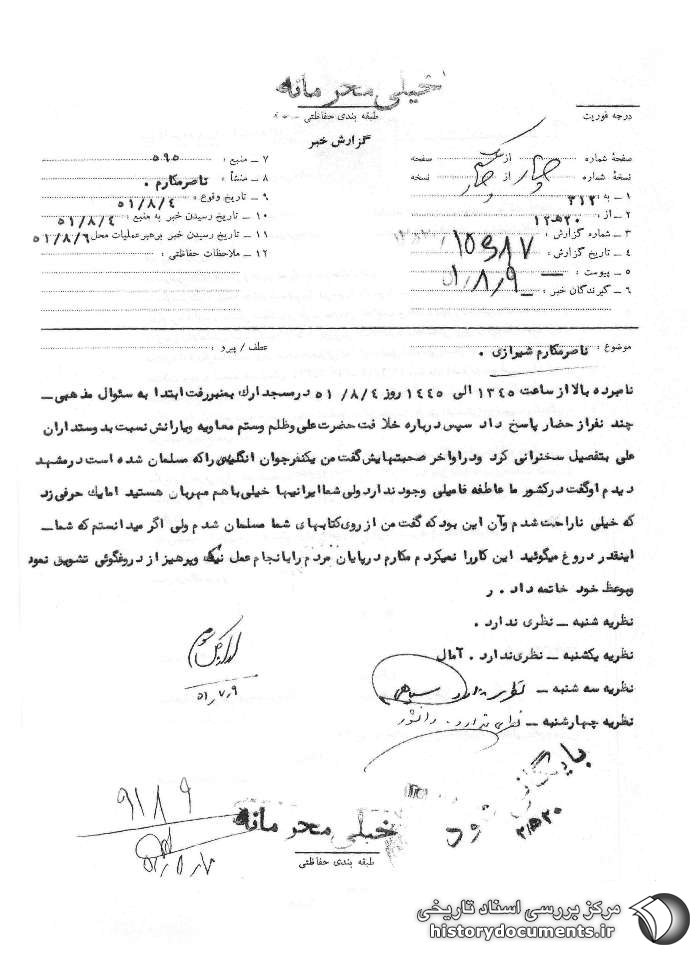 خیلی محرمانه
طبقه بندی حفاظتی
درجه فوریت
گزارش خبر
صفحهٔ شماره از یکم صفحه
نسخهٔ شماره چهار از چهار نسخه
۱ - به : ۳۱۲
۲ - از : ۲۰ ﻫ ۱۲
۳ - شماره گزارش : ۱۵۳۸۷
۴ - تاریخ گزارش : ۵۱/۸/۹
۵ - پیوست : —
۶ - گیرندگان خبر : —
۷ - منبع : ۵۹۵
۸ - منشأ : ناصرمکارم .
۹ - تاریخ وقوع : ۵۱/۸/۴
۱۰ - تاریخ رسیدن خبر به منبع : ۵۱/۸/۴
۱۱ - تاریخ رسیدن خبر برهبرعملیات محل : ۵۱/۸/۶
۱۲ - ملاحظات حفاظتی :
موضوع : ناصرمکارم شیرازی .
عطف / پیرو :
نامبرده بالا از ساعت ۱۳۴۵ الی ۱۴۴۵ روز ۵۱/۸/۴ درمسجد ارك بمنبررفت ابتدا به سئوال مذهبی ـ
چند نفراز حضار پاسخ داد سپس درباره خلافت حضرت علی وظلم وستم معاویه ویارانش نسبت به دوستداران
علی بتفصیل سخنرانی کرد ودر اواخر صحبتهایش گفت من یکنفرجوان انگلیسی راکه مسلمان شده است درمشهد
دیدم اوگفت درکشور ما عاطفه فامیلی وجود ندارد ولی شما ایرانیها خیلی باهم مهربان هستید امایك حرفی زد
که خیلی ناراحت شدم وآن این بود که گفت من از روی کتابهای شما مسلمان شدم ولی اگر میدانستم که شما ـ
اینقدر دروغ میگوئید این کاررا نمیکردم مکارم درپایان مردم رابانجام عمل نیك وپرهیز از دروغگوئی تشویق نمود
وبوعظ خود خاتمه داد . ر
نظریه شنبه ـ نظری ندارد .
نظریه یکشنبه ـ نظری ندارد . آمال
نظریه سه شنبه ـ نظری ندارد . سپاهی
نظریه چهارشنبه ـ نظری ندارد . دانشور
۵۱/۷/۹
بایگانی شود
۲۰ ﻫ ۲
۹۱۸۹
خیلی محرمانه
طبقه بندی حفاظتی
مرکز بررسی اسناد تاریخی
historydocuments.ir